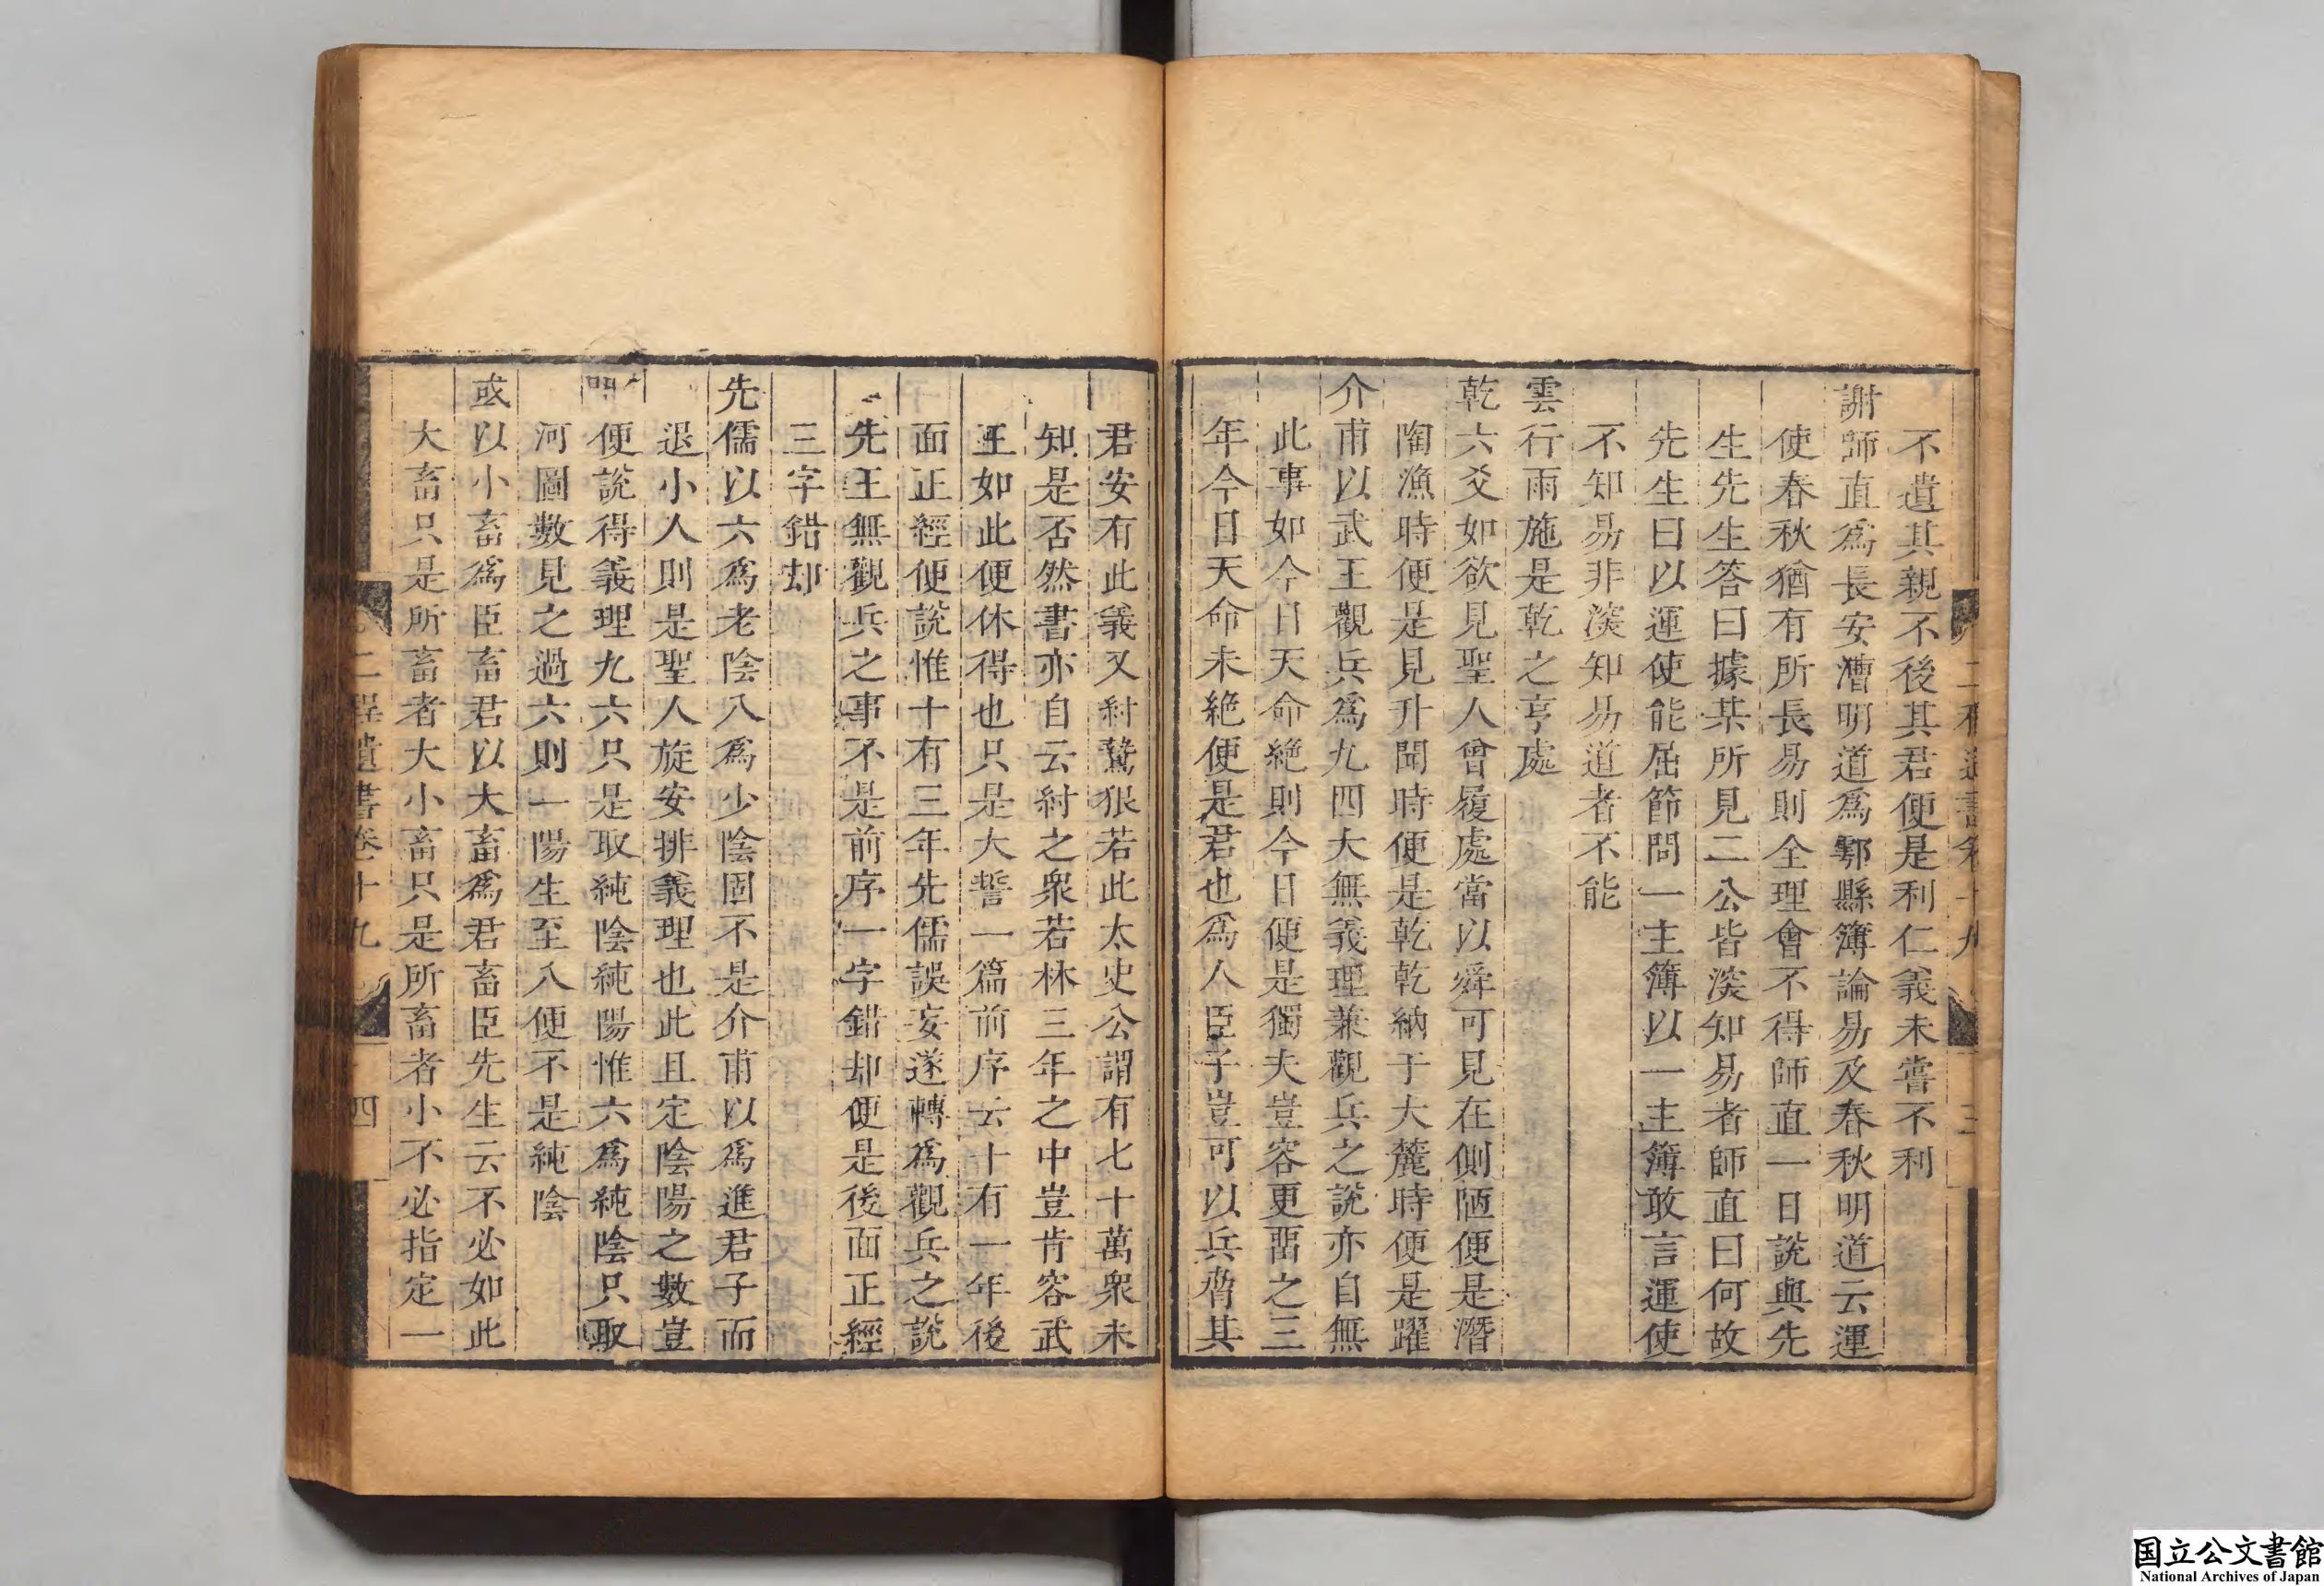 不遺其親不後其君便是利仁義未嘗不利
謝師直爲長安漕明道爲鄠縣簿論易及春秋明道云運
使春秋猶有所長易則全理會不得師直一日說與先
生先生答曰據某所見二公皆深知易者師直曰何故
先生曰以運使能屈節問一主簿以一主簿敢言運使
不知易非深知易道者不能
雲行雨施是乾之亨處
乾六爻如欲見聖人曾履處當以舜可見在側陋便是潛
陶漁時便是見升聞時便是乾乾納于大麓時便是躍
介甫以武王觀兵爲九四大無義理兼觀兵之說亦自無
此事如今日天命絶則今日便是獨夫豈容更留之三
年今日天命未絶便是君也爲人臣子豈可以兵脅其
君安有此義又紂鷙狠若此太史公謂有七十萬衆未
知是否然書亦自云紂之衆若林三年之中豈肯容武
王如此便休得也只是大誓一篇前序云十有一年後
面正經便說惟十有三年先儒誤妄遂轉爲觀兵之說
先王無觀兵之事不是前序一字錯却便是後面正經
三字錯却
先儒以六爲老陰八爲少陰固不是介甫以爲進君子而
退小人則是聖人旋安排義理也此且定陰陽之數豈
便說得義理九六只是取純陰純陽惟六爲純陰只取
河圖數見之過六則一陽生至八便不是純陰
或以小畜爲臣畜君以大畜爲君畜臣先生云不必如此
大畜只是所畜者大小畜只是所畜者小不必指定一
二程遺書卷十九
四
国立公文書館
National Archives of Japan